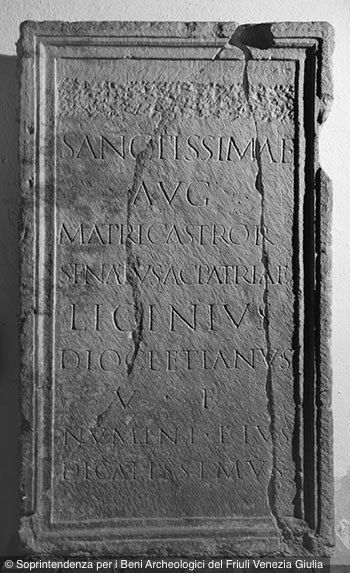 SANCTISSIMAE
AVG
MATRI CASTROR
SENATVS AC PATRIAE
LICINIVS
DIOCLETIANVS
V · E
NVMINI · EIVS
DICATISSIMVS
© Soprintendenza per i Beni Archeologici del Friuli Venezia Giulia